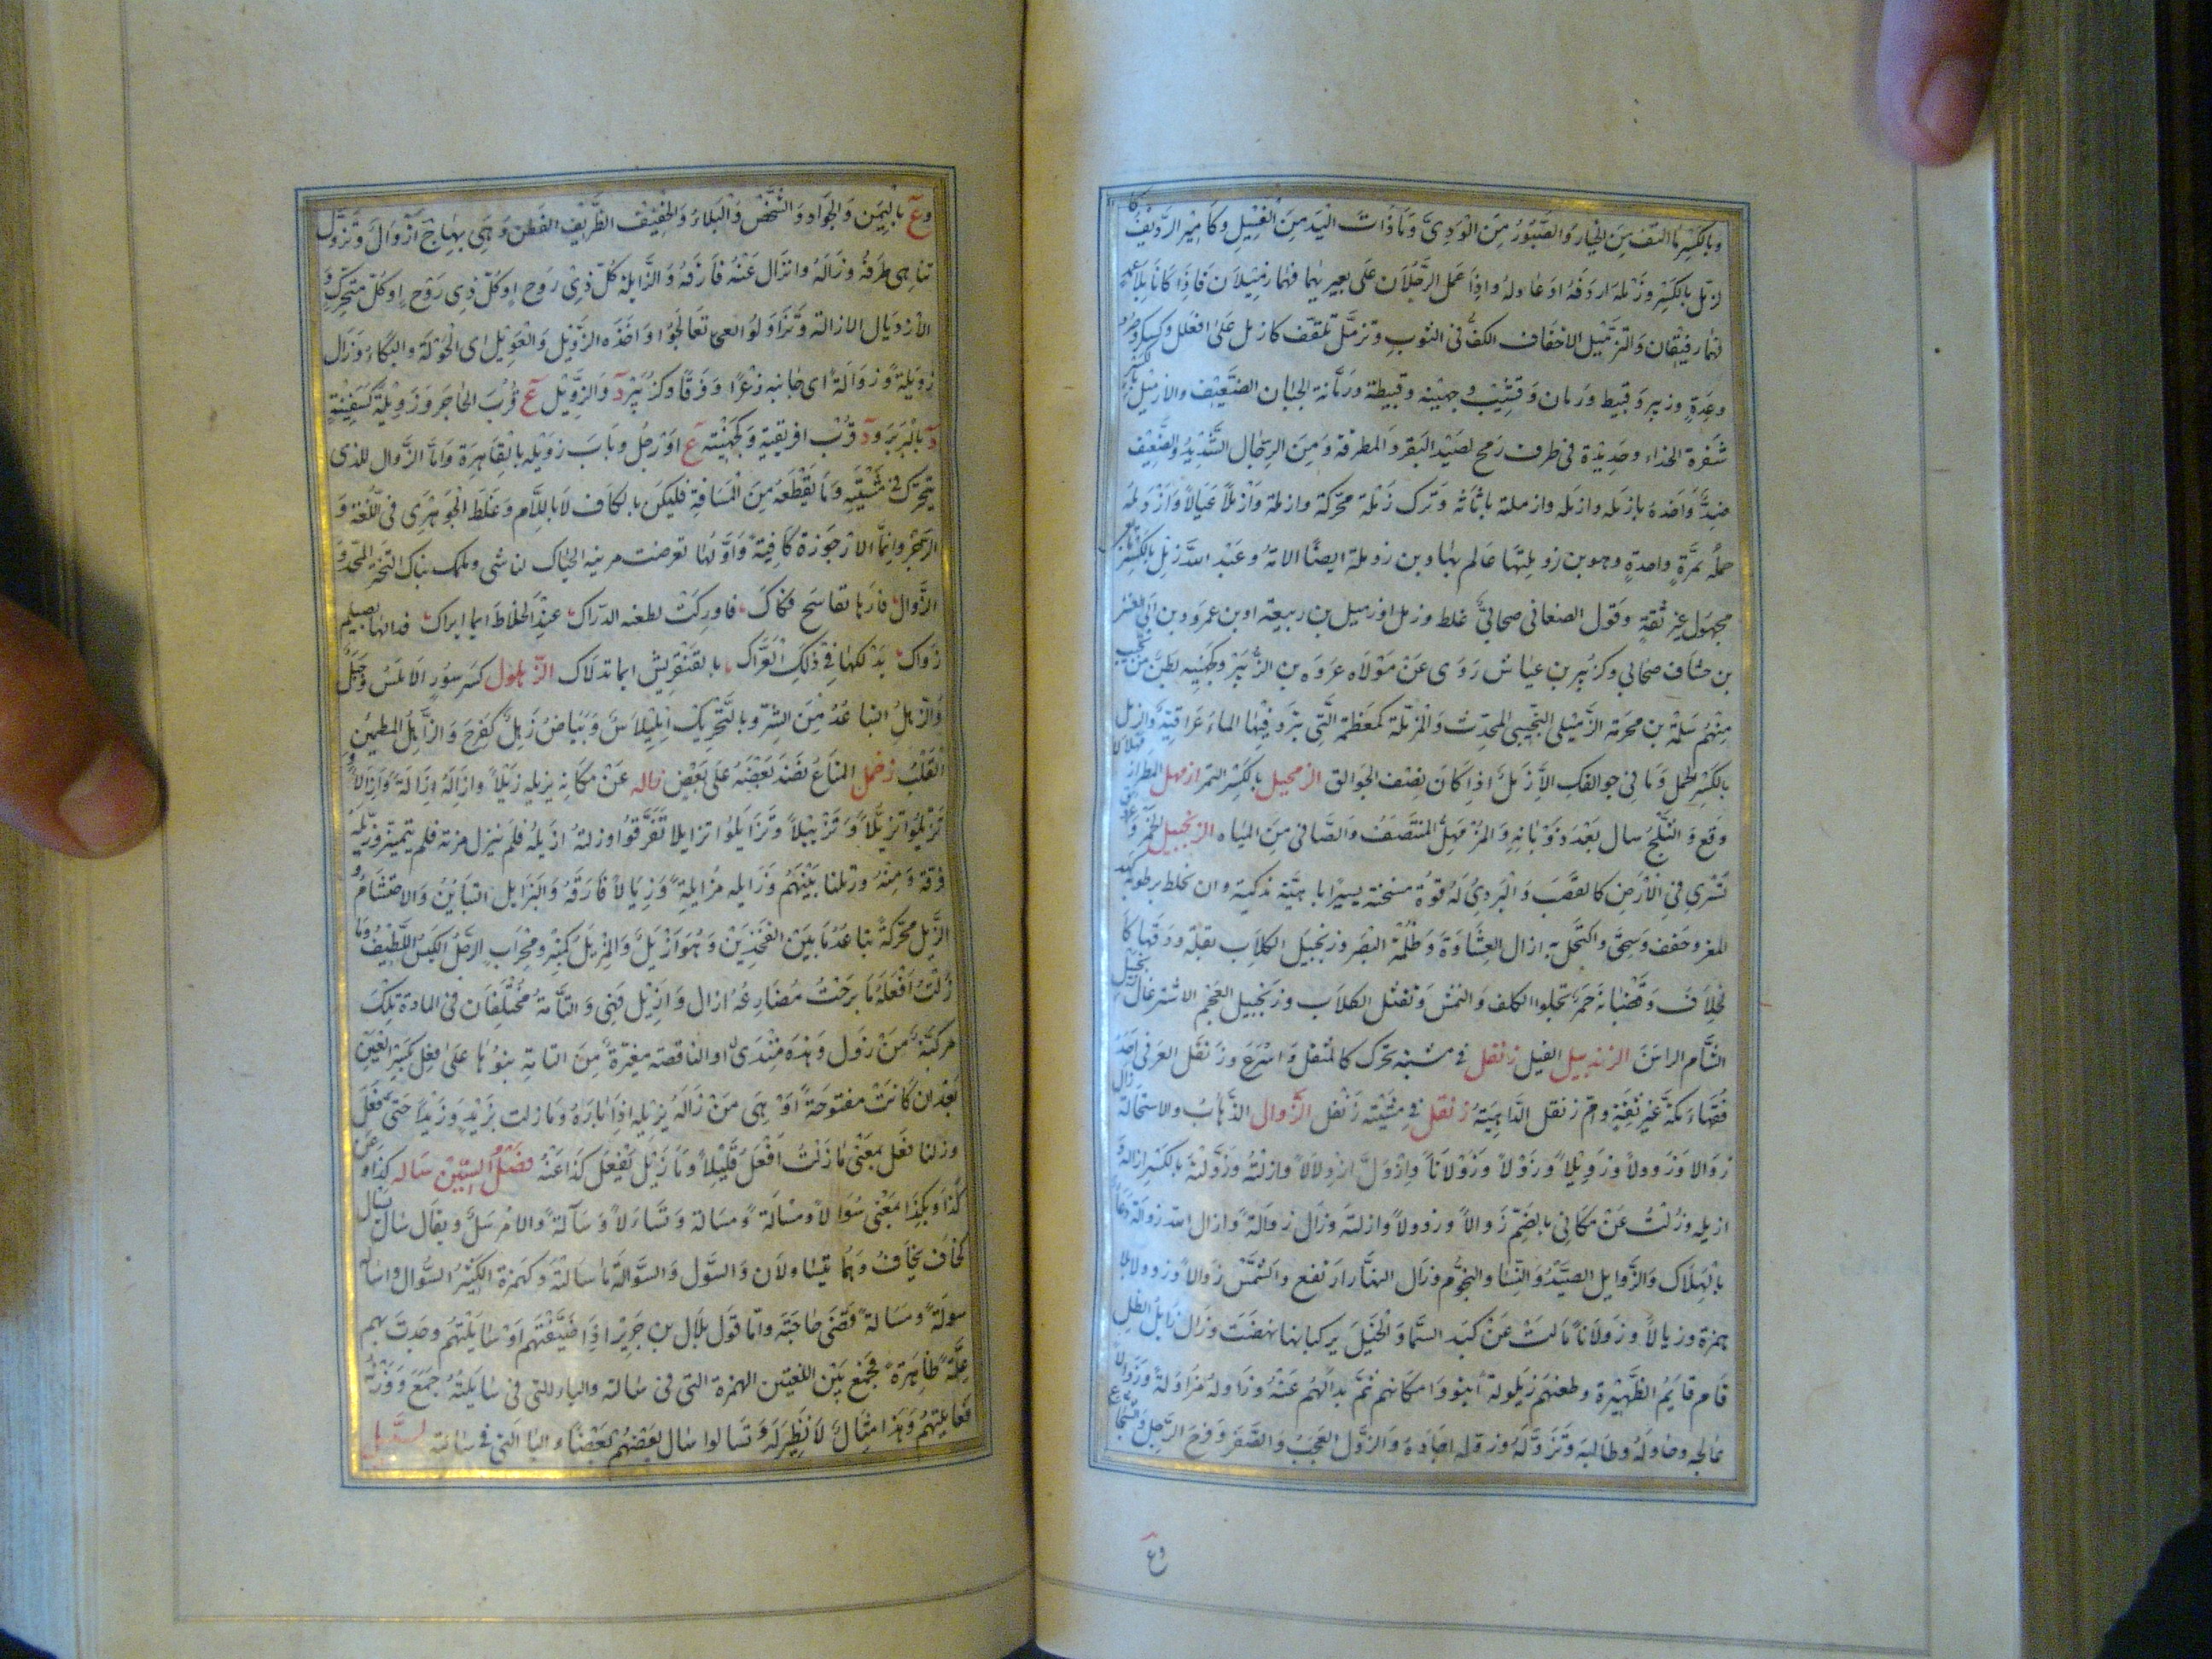 وبالكسر ما التف من الجبار والصَّبور من الودي وما فات اليد من الفسيل وكامير الرديف
لزمل بالكسر وزمله اردفه او عادله واذا عمل الرجلان على بعيريهما فهما زميلان فاذا كانا بلا عمل
فهما رفيقان والتزميل الاخفاء الكف في الثوب وتزمل تلفف كازمل على افعل وكسكر وصرد
وعدة وزبير وقبيط ورمان وقسيب وجهينه وقبيطة ورمانة الجبان الضعيف والازميل بالكسر
شفرة الحذاء وحديدة في طرف رمح لصيد البقر والمطرقة ومن الرجال الشديد والضعيف
ضد واخذه بازمله وازمله وازملة باثاثه وترك زملة محركة وازملة وازملا عيالا وازدمله
حمله بمرة واحدة وهو بن زوملتها عالم بها وبن زوملة ايضا الامة وعبد الله زمل بالكسر تابعي
مجهول غير ثقة وقول الصغاني صحابي غلط وزمل او زميل بن ربيعة او بن عمرو وبن ابي العنز
بن خشاف صحابي وكزبير بن عياش روى عن مولاه عروه بن الزبير وكجهينه بطن من تجيب
منهم سلمة بن مخرمة الزميلي التجيبي المحدث والمزملة كمعظمة التي يبرد فيها الماء عراقية والزمل
بالكسر الحمل وما في جوالقك الا زمل اذا كان نصف الجوالق الزمحيل بالكسر النمر ازمهل المطر ازمهلالا
وقع والثلج سال بعد ذوبانه والمزمهل المنتصف والصافي من المياه الزنجبيل الخمر وعروق
تسري في الارض كالقصب والبردي له قوة مسخنة يسيرا باهية مذكية وان خلط برطوبة كبد
المعز وجفف وسحق واكتحل به ازال العشاوة وظلمة البصر وزنجبيل الكلاب بقلة ورقها كا
لخلاف وقضبانه حمر تجلو الكلف والنمش وتقتل الكلاب وزنجبيل العجم الاشترغاز وزنجبيل
الشام الراسن الزندبيل الفيل زنفل في مشيه تحرك كالمثقل واسرع وزنفل العرفي احد
فقهاء مكة غير ثقة وام زنفل الداهية زنقل في مشيته زنفل الزوال الذهاب والاستحالة زال
زوالا وزوولا وزويلا وزولا وزولانا وازول ازولالا وازلته وزولته بالكسر ازاله و
ازيله وزلت عن مكاني بالضم زوالا وزوولا وازلته وزال زوالة وازال الله زواله دعا له
بالهلاك والزوايل الصيد والنسا والنجوم وزال النهار ارتفع والشمس زوالا وزوولا بلا
همزة وزيالا وزولانا مالت عن كبد السما والخيل بركبانها نهضت وزال زايل الظل
قام قايم الظهيرة وظعنهم زيلولة ايتووا مكانهم ثم بدالهم عنه وزاوله مزاولة وزوالا
عالجه وحاوله وطالبه وتزوله وزوله اجاده والزول العجب والصقر وفرج الرجل والشجاع
وع
وع باليمن والجواد والشخص والبلاء والخفيف الظريف الفطن وهي بهاء ج ازوال وتزول
تناهى ظرفه وزاله وانزال عنه فارقه والزايلة كل ذي روح او كل ذي روح او كل متحرك و
الازديال الازالة وتزاولوا تعالجوا واخذه الزويل والعويل اى الحركة والبكاء وزال
زويلة وزوالة اى جانبه ذعرا وفرقا وكزبير د والزويل ع قرب الحاجر وزويلة كسفينة
د بالبربر ود قرب افريقية وكجهينه ع او رجل وباب زويله بالقاهرة واما الزوال للذي
يتحرك في مشيته وما يقطعه من المسافة فليكن بالكاف لا باللام وغلط الجوهري في اللغة و
الرجز وانما الارجوزة كافية واولها تعرضت مريئة الحياك لناشي دمكمك نياك البحتر المجذر
الزواك فارها بقاسح بكاك فاوركت لطعنه الدراك عند الخلاط ايما ايراك فداكها بصيلم
زواك يدلكها في ذلك العراك بالقنفريش ايما تدلاك الزهلول كسرسور الاملس وجبل
والزهل التباعد من الشر وبالتحريك امليلاس وبياض زهل كفرح والزاهل المطمين
القلب زهمل المتاع نضد بعضه على بعض زاله عن مكانه يزيله زيلا وازاله ازالة وازالا
وتزيلوا تزيلا وتزييلا وتزايلوا تزايلا تفرقوا وزلته ازيله فلم ينزل مزته فلم يتميز وزيله
فرقه ومنه وزيلنا بينهم وزايله مزايلة وزيالا فارقه والتزايل التباين والاحتشام و
الزيل محركة تباعد ما بين الفخذين وهو ازيل والمزيل كمنبر ومحراب الرجل الكيس اللطيف وما
زلت افعله ما برحت مضارعه ازال وازيل فهي والتامة مختلفان في المادة تلك
مركبة من زول وهذه من زي ل او الناقصة مغيرة من التامة بنوها على فعل بكسر العين
بعد ان كانت مفتوحة او هي من زاله يزيله اذا مازه وما زلت بزيد وزيدا حتى فعل
وزلنا فعل بمعنى مازلت افعل قليلا وما زيل يفعل كذا عنه فصل السين ساله كذا وعن
كذا وبكذا بمعنى سؤالا ومسألة ومسالة وتسالا وسآلة والامر سل ويقال سال يسال
كخاف يخاف وهما يتساولان والسول والسولة ماسالته وكهمزة الكثير السوال واساله
سولة ومسالة قضى حاجته واما قول بلال بن جرير اذا ضيفتهم او سايلتهم وجدت بهم
علة حاضرة فجمع بين اللغتين الهمزة التي في سالته والياء للتي في سايلته جمع ووزنه
فعايلتهم وهذا مثال لا نظير له وتسالوا سال بعضهم بعضا